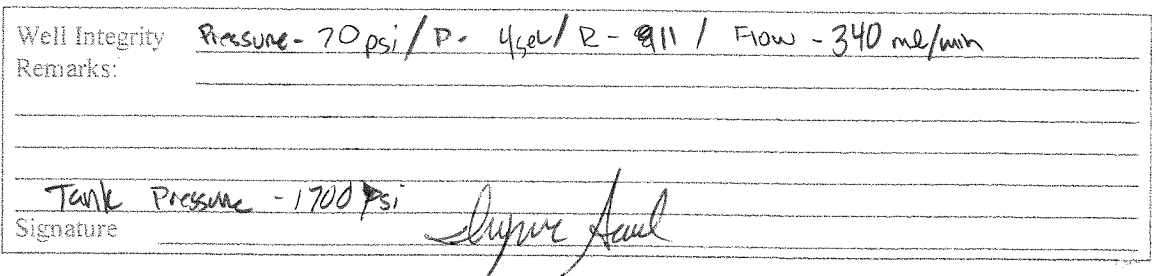 Well Integrity Pressure - 70 psi / P - 4sec / R - 11 / Flow - 340 ml/min
Remarks:
Tank Pressure - 1700 psi
Signature